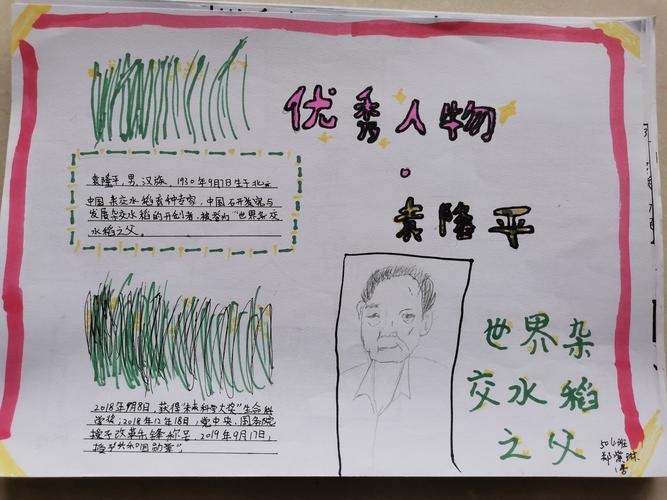 优秀人物
·
袁隆平
袁隆平，男，汉族，1930年9月7日生于北京
中国杂交水稻育种专家，中国研究与
发展杂交水稻的开创者，被誉为"世界杂交
水稻之父。
世界杂
交水稻
之父
2018年9月8日，获得未来科学大奖"生命科
学奖；2018年12月18日，党中央、国务院
授予改革先锋称号，2019年9月17日，
授予"共和国勋章"。
506班
郑紫琳
1号